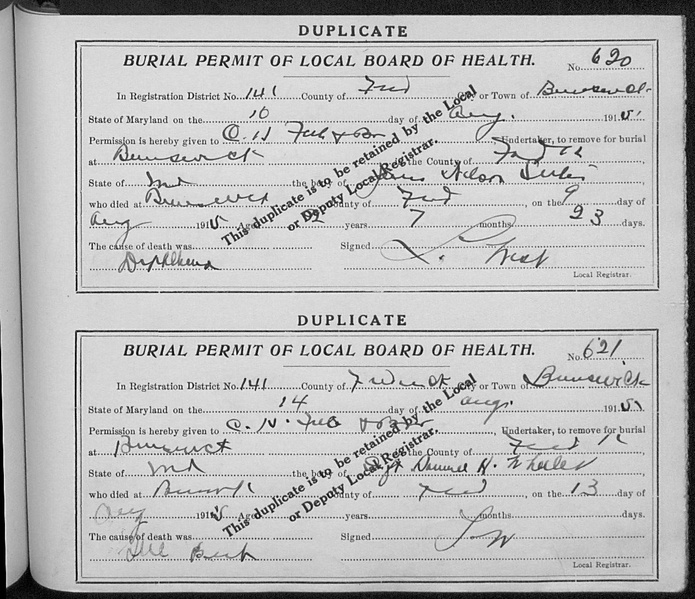 DUPLICATE
BURIAL PERMIT OF LOCAL BOARD OF HEALTH.
No. 620
In Registration District No. 141 County of Fred City or Town of Brunswick
State of Maryland on the 10 day of Aug. 1915
Permission is hereby given to C. H. & Bro Undertaker, to remove for burial
at Brunswick in the County of Fredk
State of Md the body of Nelson
who died at Brunswick County of Fred, on the 9 day of
Aug 1915 Aged years 7 months 23 days.
The cause of death was Signed
Diphtheria L. West
Local Registrar.
This duplicate is to be retained by the Local
or Deputy Local Registrar.
DUPLICATE
BURIAL PERMIT OF LOCAL BOARD OF HEALTH.
No. 621
In Registration District No. 141 County of Fredrick City or Town of Brunswick
State of Maryland on the 14 day of Aug. 1915
Permission is hereby given to C. H. & Bro Undertaker, to remove for burial
at Brunswick in the County of Fredk
State of Md the body of H. Wheeler
who died at Brunswick County of Fred, on the 13 day of
Aug 1915 Aged years months days.
The cause of death was Signed
Still Birth LW
Local Registrar.
This duplicate is to be retained by the Local
or Deputy Local Registrar.